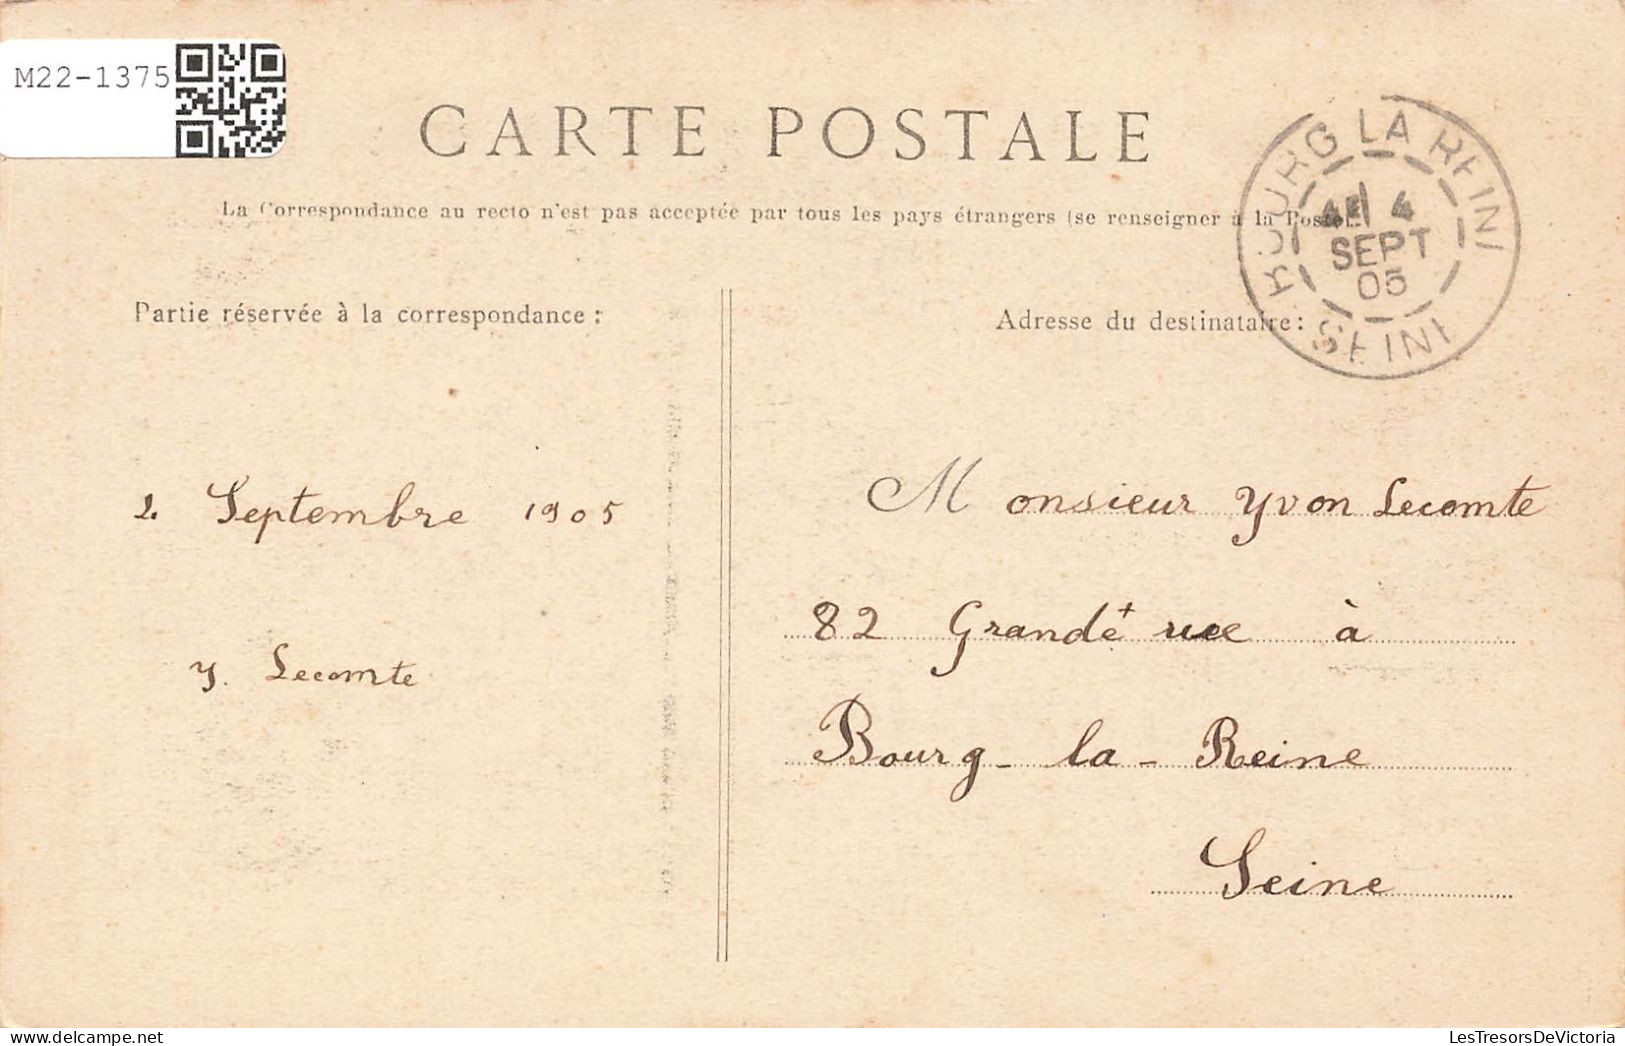 M22-1375
CARTE POSTALE
La Correspondance au recto n'est pas acceptée par tous les pays étrangers (se renseigner à la Poste).
BOURG LA REINE
4
SEPT
05
SEINE
Partie réservée à la correspondance :
Adresse du destinataire :
2. Septembre 1905
Y. Lecomte
Monsieur Yvon Lecomte
82 Grande rue à
Bourg-la-Reine
Seine
M22-1375.jpg
LesTresorsDeVictoria